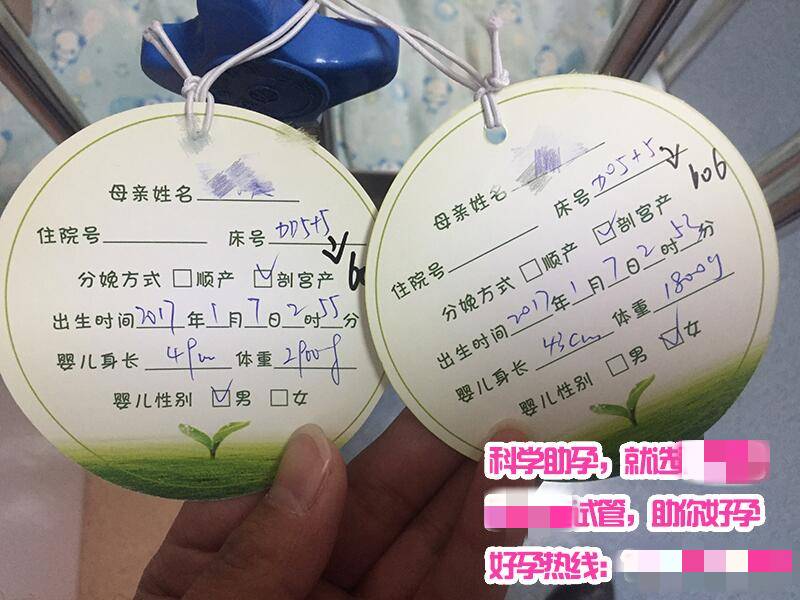 母亲姓名
住院号 床号 D05+5
分娩方式 □顺产 ☑剖宫产
出生时间 2017 年 1 月 7 日 2 时 55 分
婴儿身长 49cm 体重 2900g
婴儿性别 ☑男 □女
母亲姓名
住院号 床号 D05+5 606
分娩方式 □顺产 ☑剖宫产
出生时间 2017 年 1 月 7 日 2 时 52 分
婴儿身长 43cm 体重 1800g
婴儿性别 □男 ☑女
科学助孕，就选
试管，助你好孕
好孕热线：